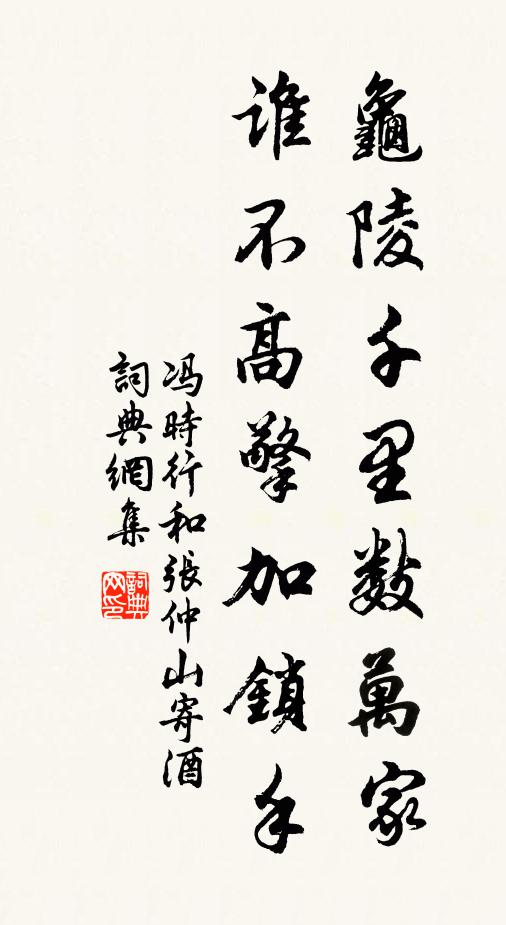 龜陵千里數萬家
誰不高擎加鎖手
冯時行和張仲山寄酒
詞典網集
詞典网印